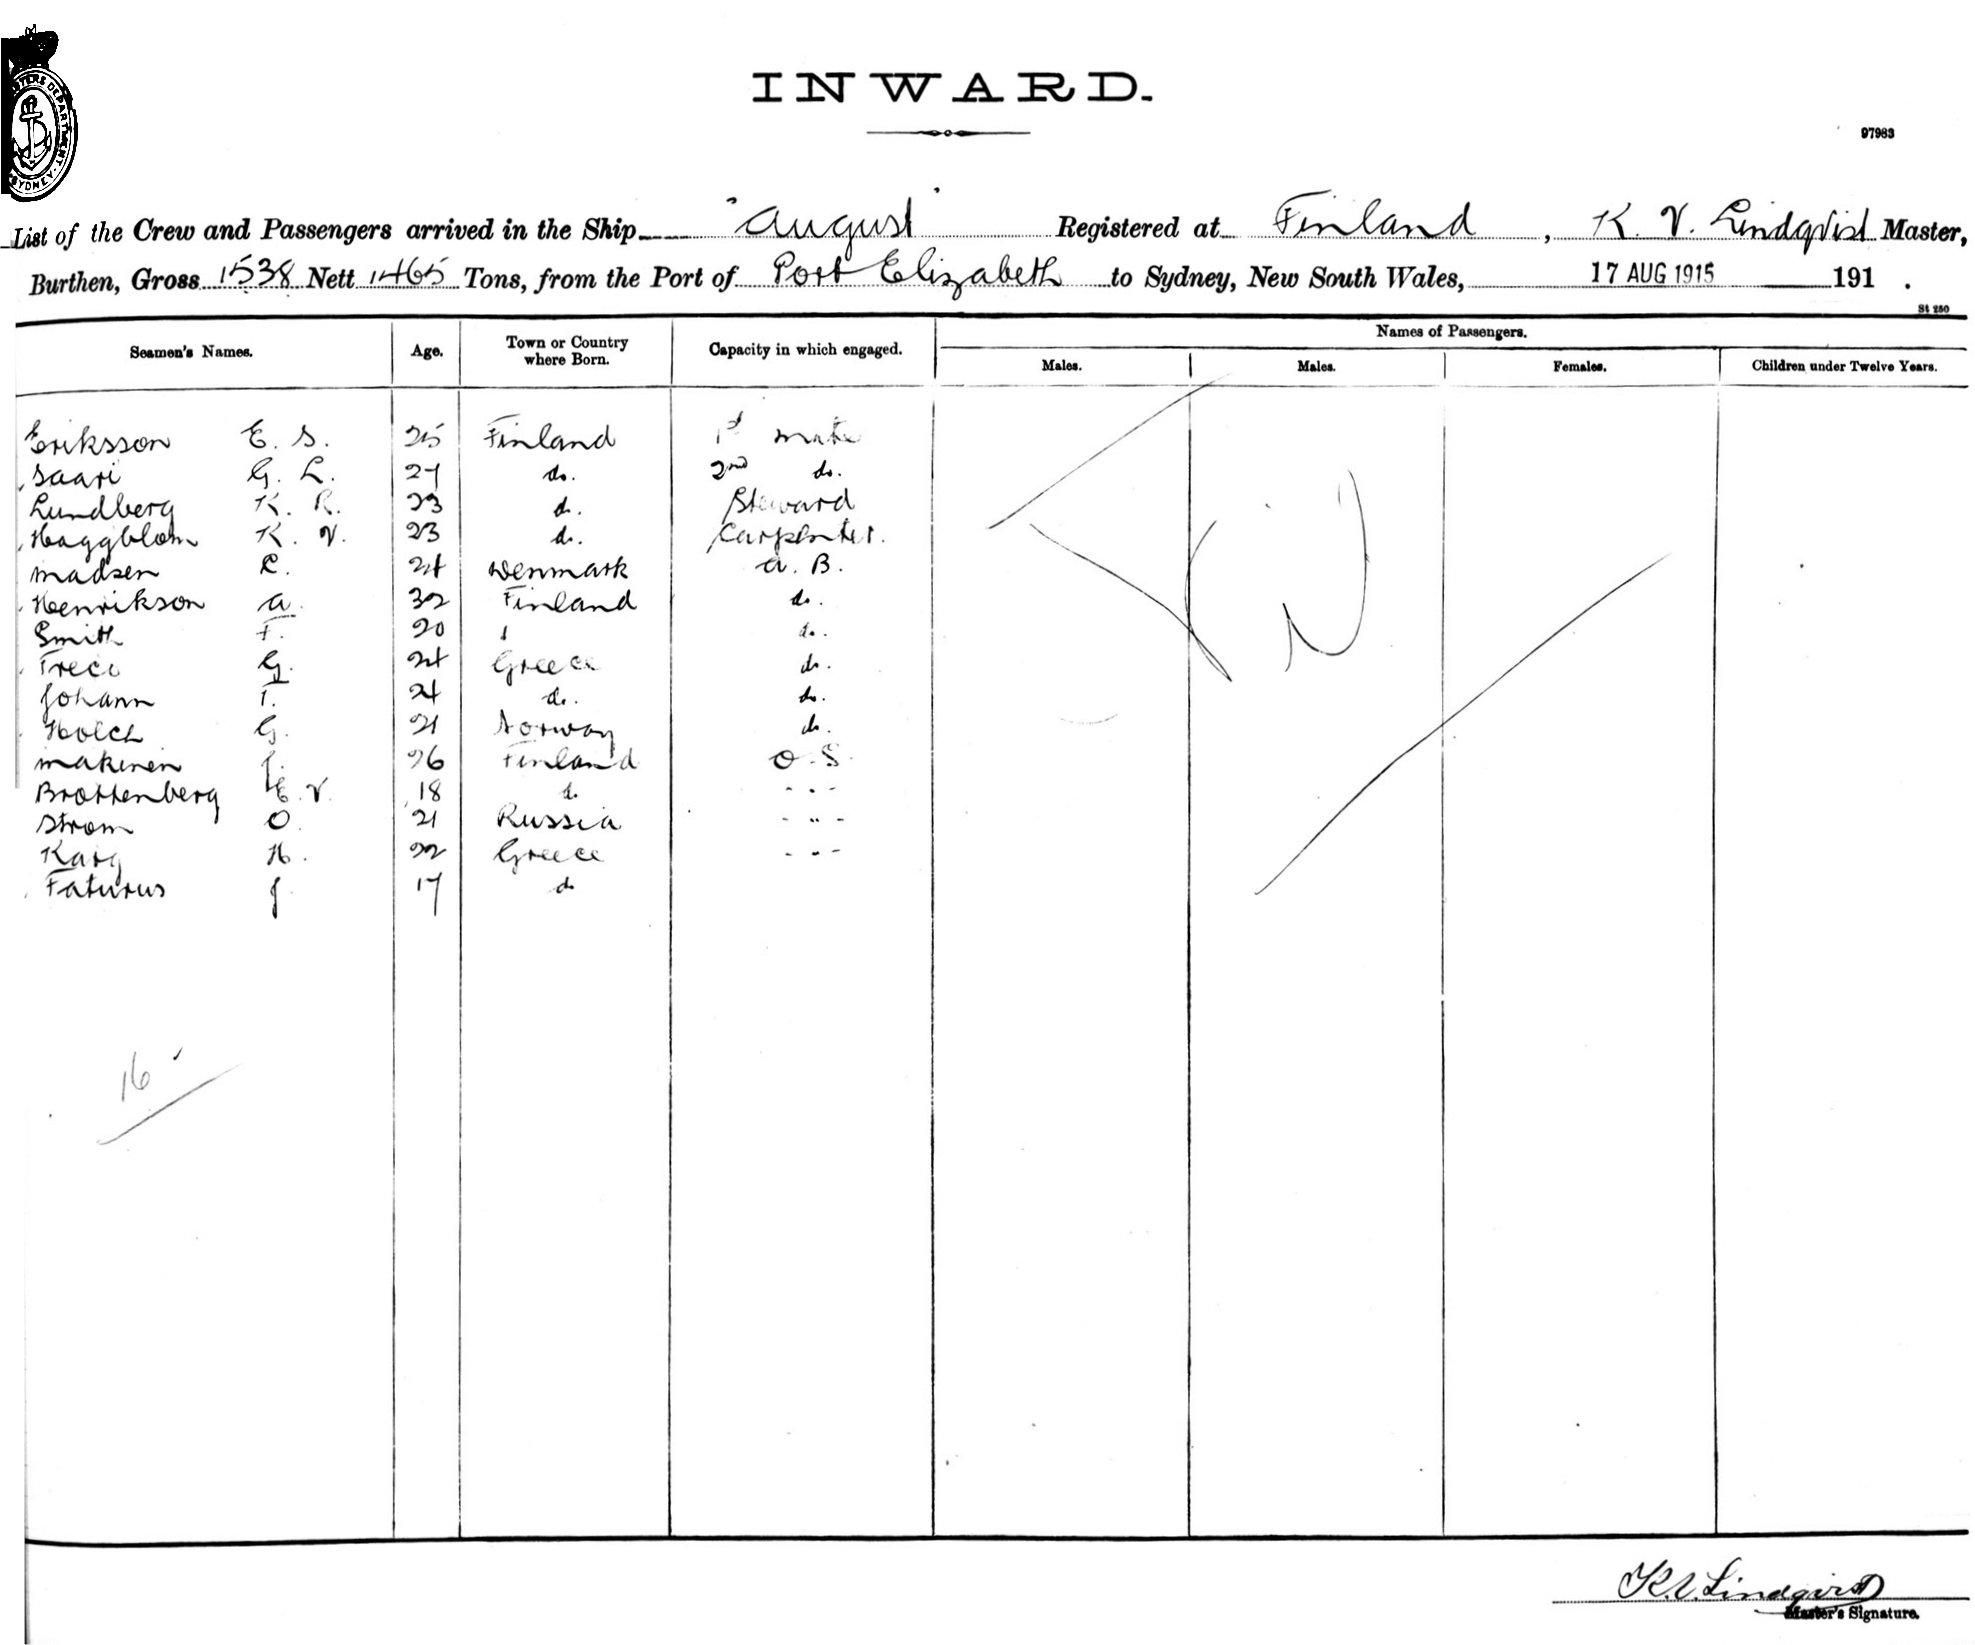 INWARD.
97983
SYDNEY
List of the Crew and Passengers arrived in the Ship "August" Registered at Finland, K. V. Lindqvist Master,
Burthen, Gross 1538 Nett 1465 Tons, from the Port of Port Elizabeth to Sydney, New South Wales, 17 AUG 1915 191 .
St 250
Seamen's Names. Age. Town or Country where Born. Capacity in which engaged. Names of Passengers.
Males. Males. Females. Children under Twelve Years.
Eriksson E. S. 25 Finland 1st mate
Saari G. L. 27 do. 2nd do.
Lundberg K. R. 23 do. Steward
Haggblom K. V. 23 do. Carpenter.
Madsen 24 Denmark A. B.
Henrikson A. 32 Finland do.
Smith F. 20 do.
Treci G. 24 Greece do.
Johann T. 24 do. do.
Holch G. 21 Norway do.
Makinen J. 26 Finland O. S.
Brottenberg E. V. 18 do - " -
Strom O. 21 Russia - " -
Karg H. 22 Greece - " -
Faturus J. 17 do
Nil
16
K.V. Lindqvist
Master's Signature.